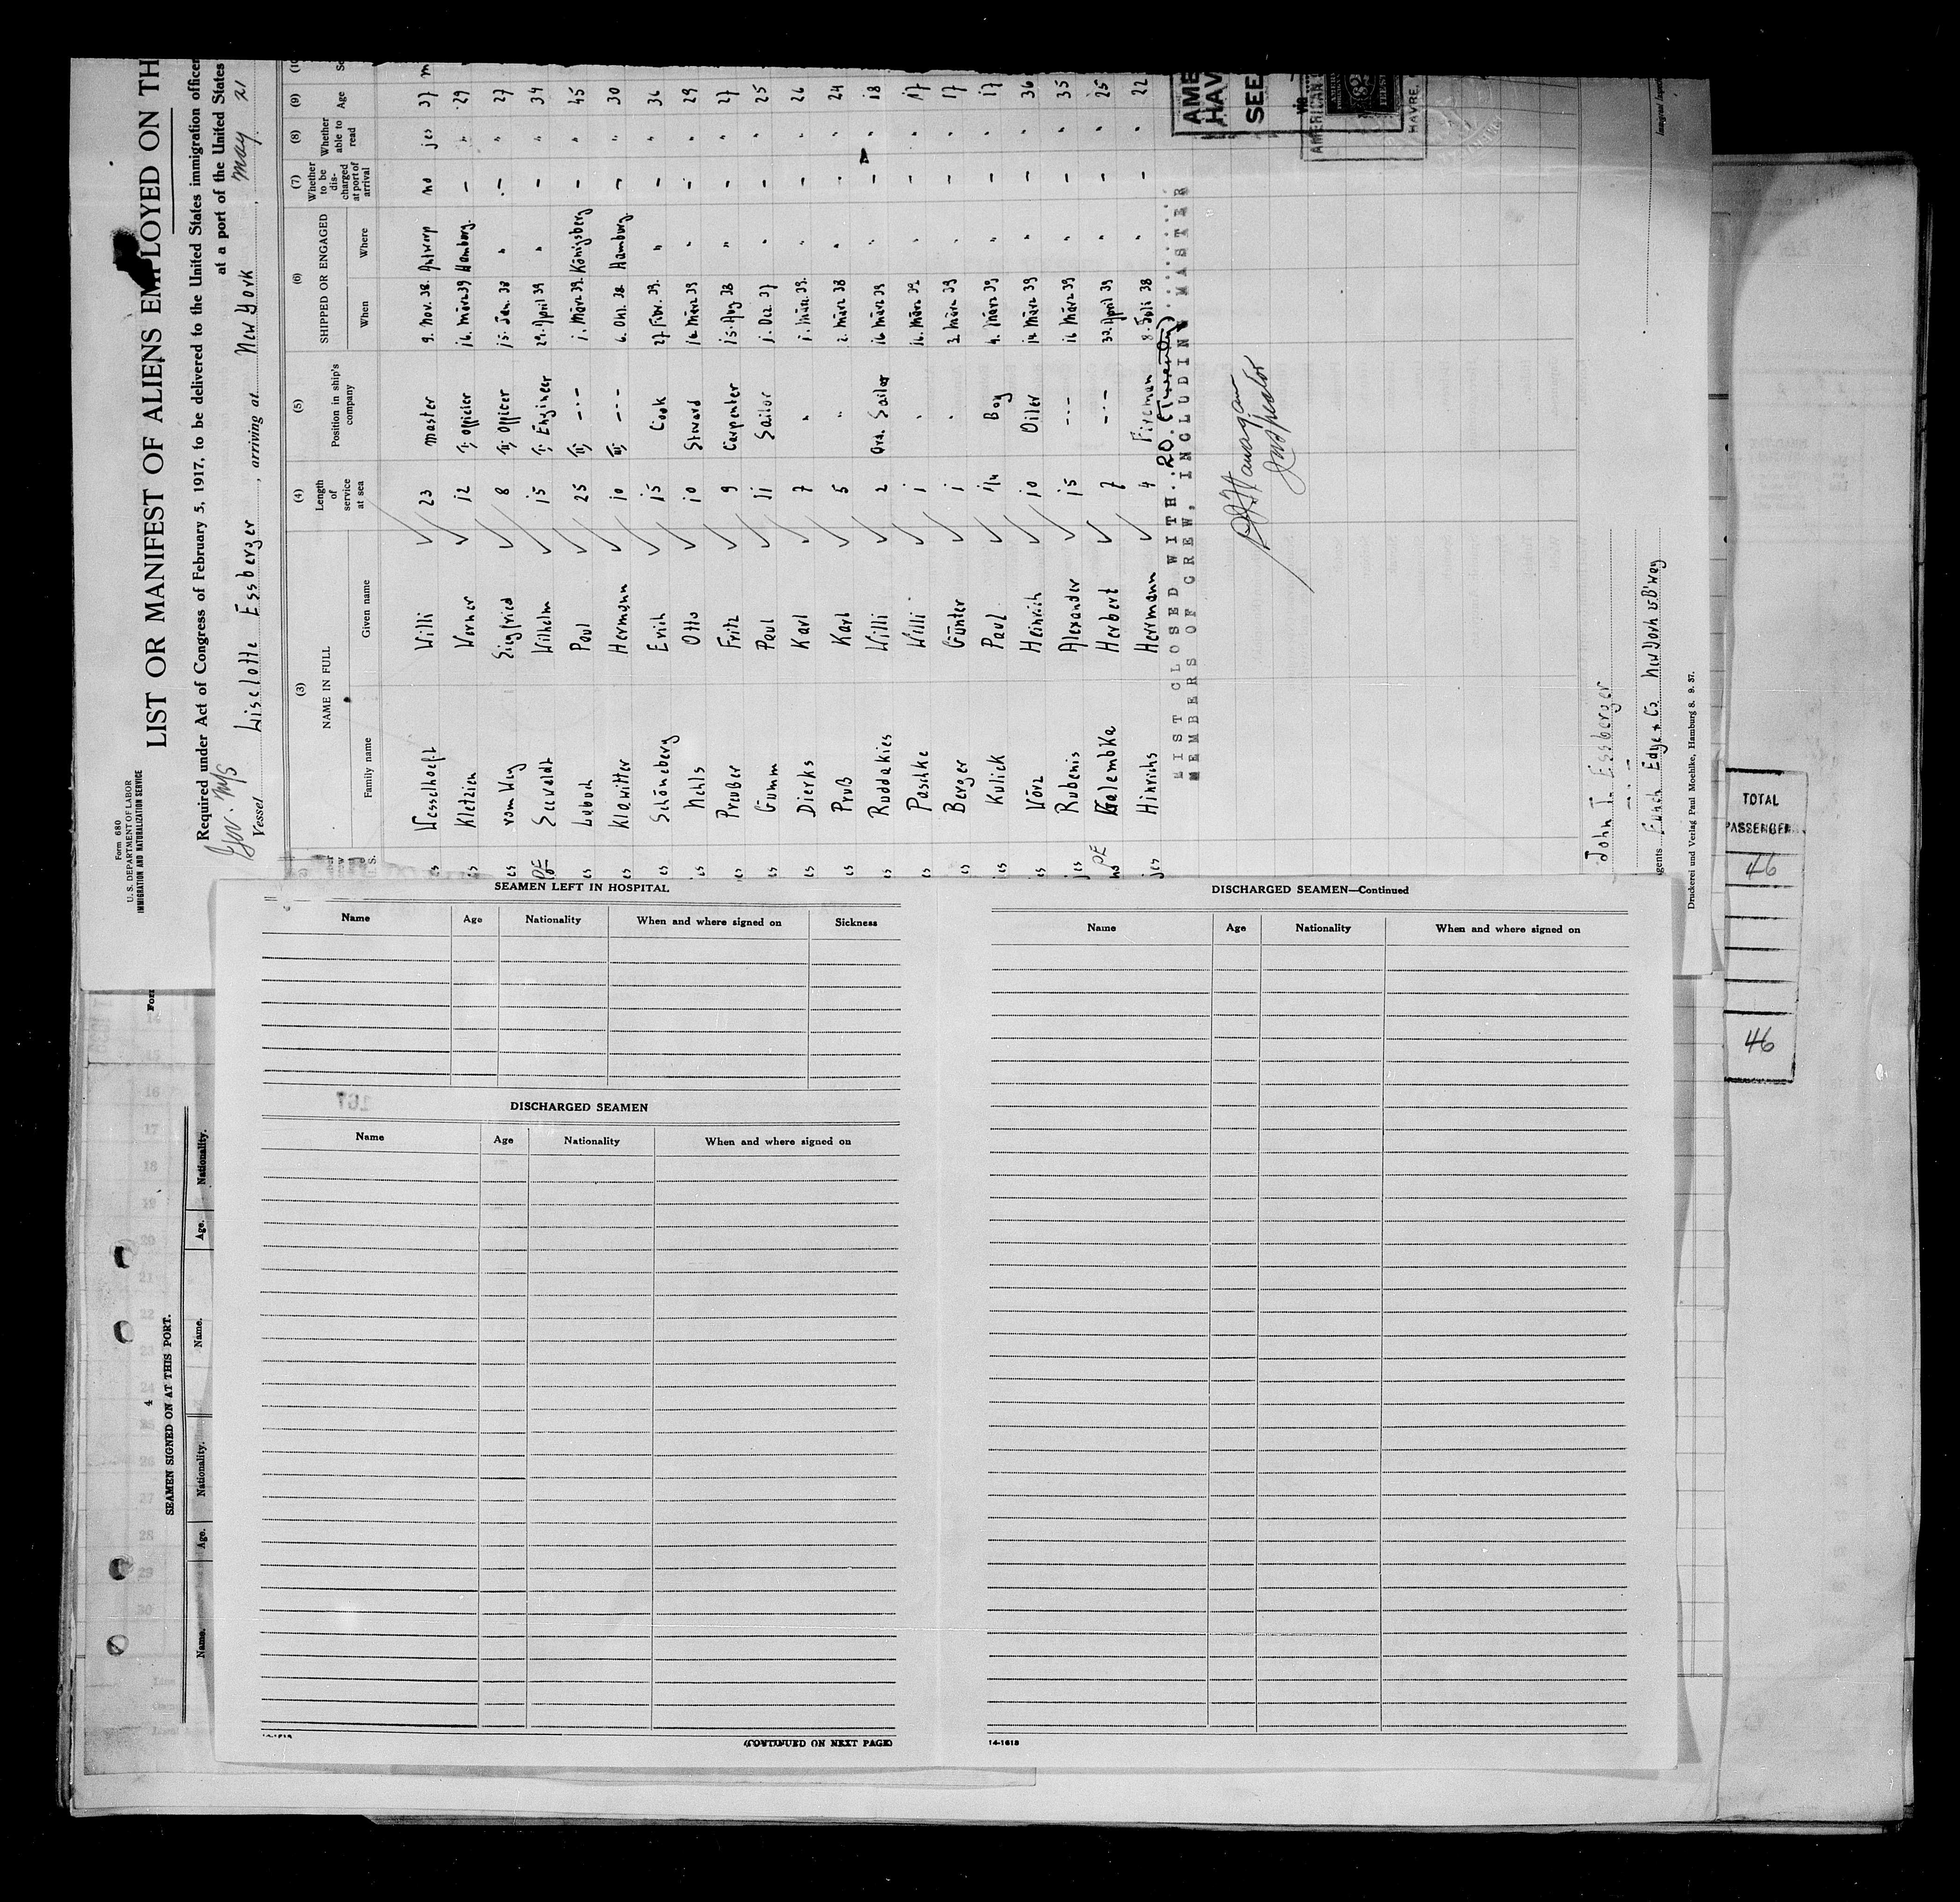 Form 680
U. S. DEPARTMENT OF LABOR
IMMIGRATION AND NATURALIZATION SERVICE
LIST OR MANIFEST OF ALIENS EMPLOYED ON TH
Required under Act of Congress of February 5, 1917, to be delivered to the United States immigration officer
at a port of the United States
Ger. M/S
Vessel Liselotte Essberger, arriving at New York, May 21
(3) (4) (5) (6) (7) (8) (9) (10
NAME IN FULL Length of service at sea Position in ship's company SHIPPED OR ENGAGED Whether to be discharged at port of arrival Whether able to read Age Se
Family name Given name When Where
es Wesselhoeft Willi 23 Master 9. Nov. 38. Antwerp no jes 37 m
es Kletzien Werner 12 I. Officier 16. März 39 Hamburg. – " 29
es vom Wey Siegfried 8 II. Officer 15. Jan. 38 " – " 27
Seevaldt Wilhelm 15 I. Engineer 29. April 39 " – " 34
es Luboch Paul 25 II. –·– 1. März 39. Königsberg – " 45
es Klawitter Hermann 10 III. –·– 6. Okt. 38 Hamburg. – " 30
es Schöneberg Erich 15 Cook 27. Febr. 39. " – " 36
es Nehls Otto 10 Steward 16. März 39 " – " 29
es Preußer Fritz 9 Carpenter 15. Aug 38 " – " 27
es Gumm Paul 11 Sailor 1. Dez. 37 " – " 25
es Dierks Karl 7 " 1. März 39. " – " 26
es Pruß Karl 5 " 2. März 38 " – " 24
es Ruddakies Willi 2 Ord. Sailor 16 März 39 " – " 18
es Paschke Willi 1 " 16. März 39 " – " 17
es Berger Günter 1 " 2 März 39 " – " 17
es Kulick Paul 1/4 Boy 4. März 39 " – " 17
es Wörz Heinrich 10 Oiler 14 März 39 " – " 36
jes Rubenis Alexander 15 –·– 16 März 39 " – " 35
Galembka Herbert 7 –·– 30. April 39 " – " 25
jes Hinrichs Herrmann 4 Fireman 8. Juli 38 – " 22
LIST CLOSED WITH 20. (Twenty)
MEMBERS OF CREW, INCLUDING MASTER
Inspector
AME
HAV
SEE
AMERICAN
HAVRE,
John T. Essberger
gents Funch Edge & Co. New York
Immigrant Inspec
Druckerei und Verlag Paul Moehlke, Hamburg 8. 9. 37.
TOTAL
PASSENGER
46
46
SEAMEN LEFT IN HOSPITAL
Name Age Nationality When and where signed on Sickness
167
DISCHARGED SEAMEN
Name Age Nationality When and where signed on
(CONTINUED ON NEXT PAGE)
DISCHARGED SEAMEN—Continued
Name Age Nationality When and where signed on
14-1618
Form
4
SEAMEN SIGNED ON AT THIS PORT.
Name. Age. Nationality. Name. Age. Nationality.
16
17
18
19
20
21
22
23
24
25
26
27
28
29
30